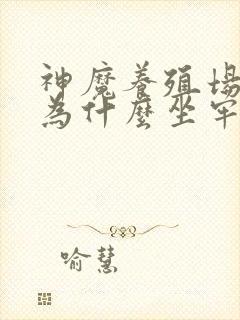 神魔養殖場
為什麼坐牢
喻慧